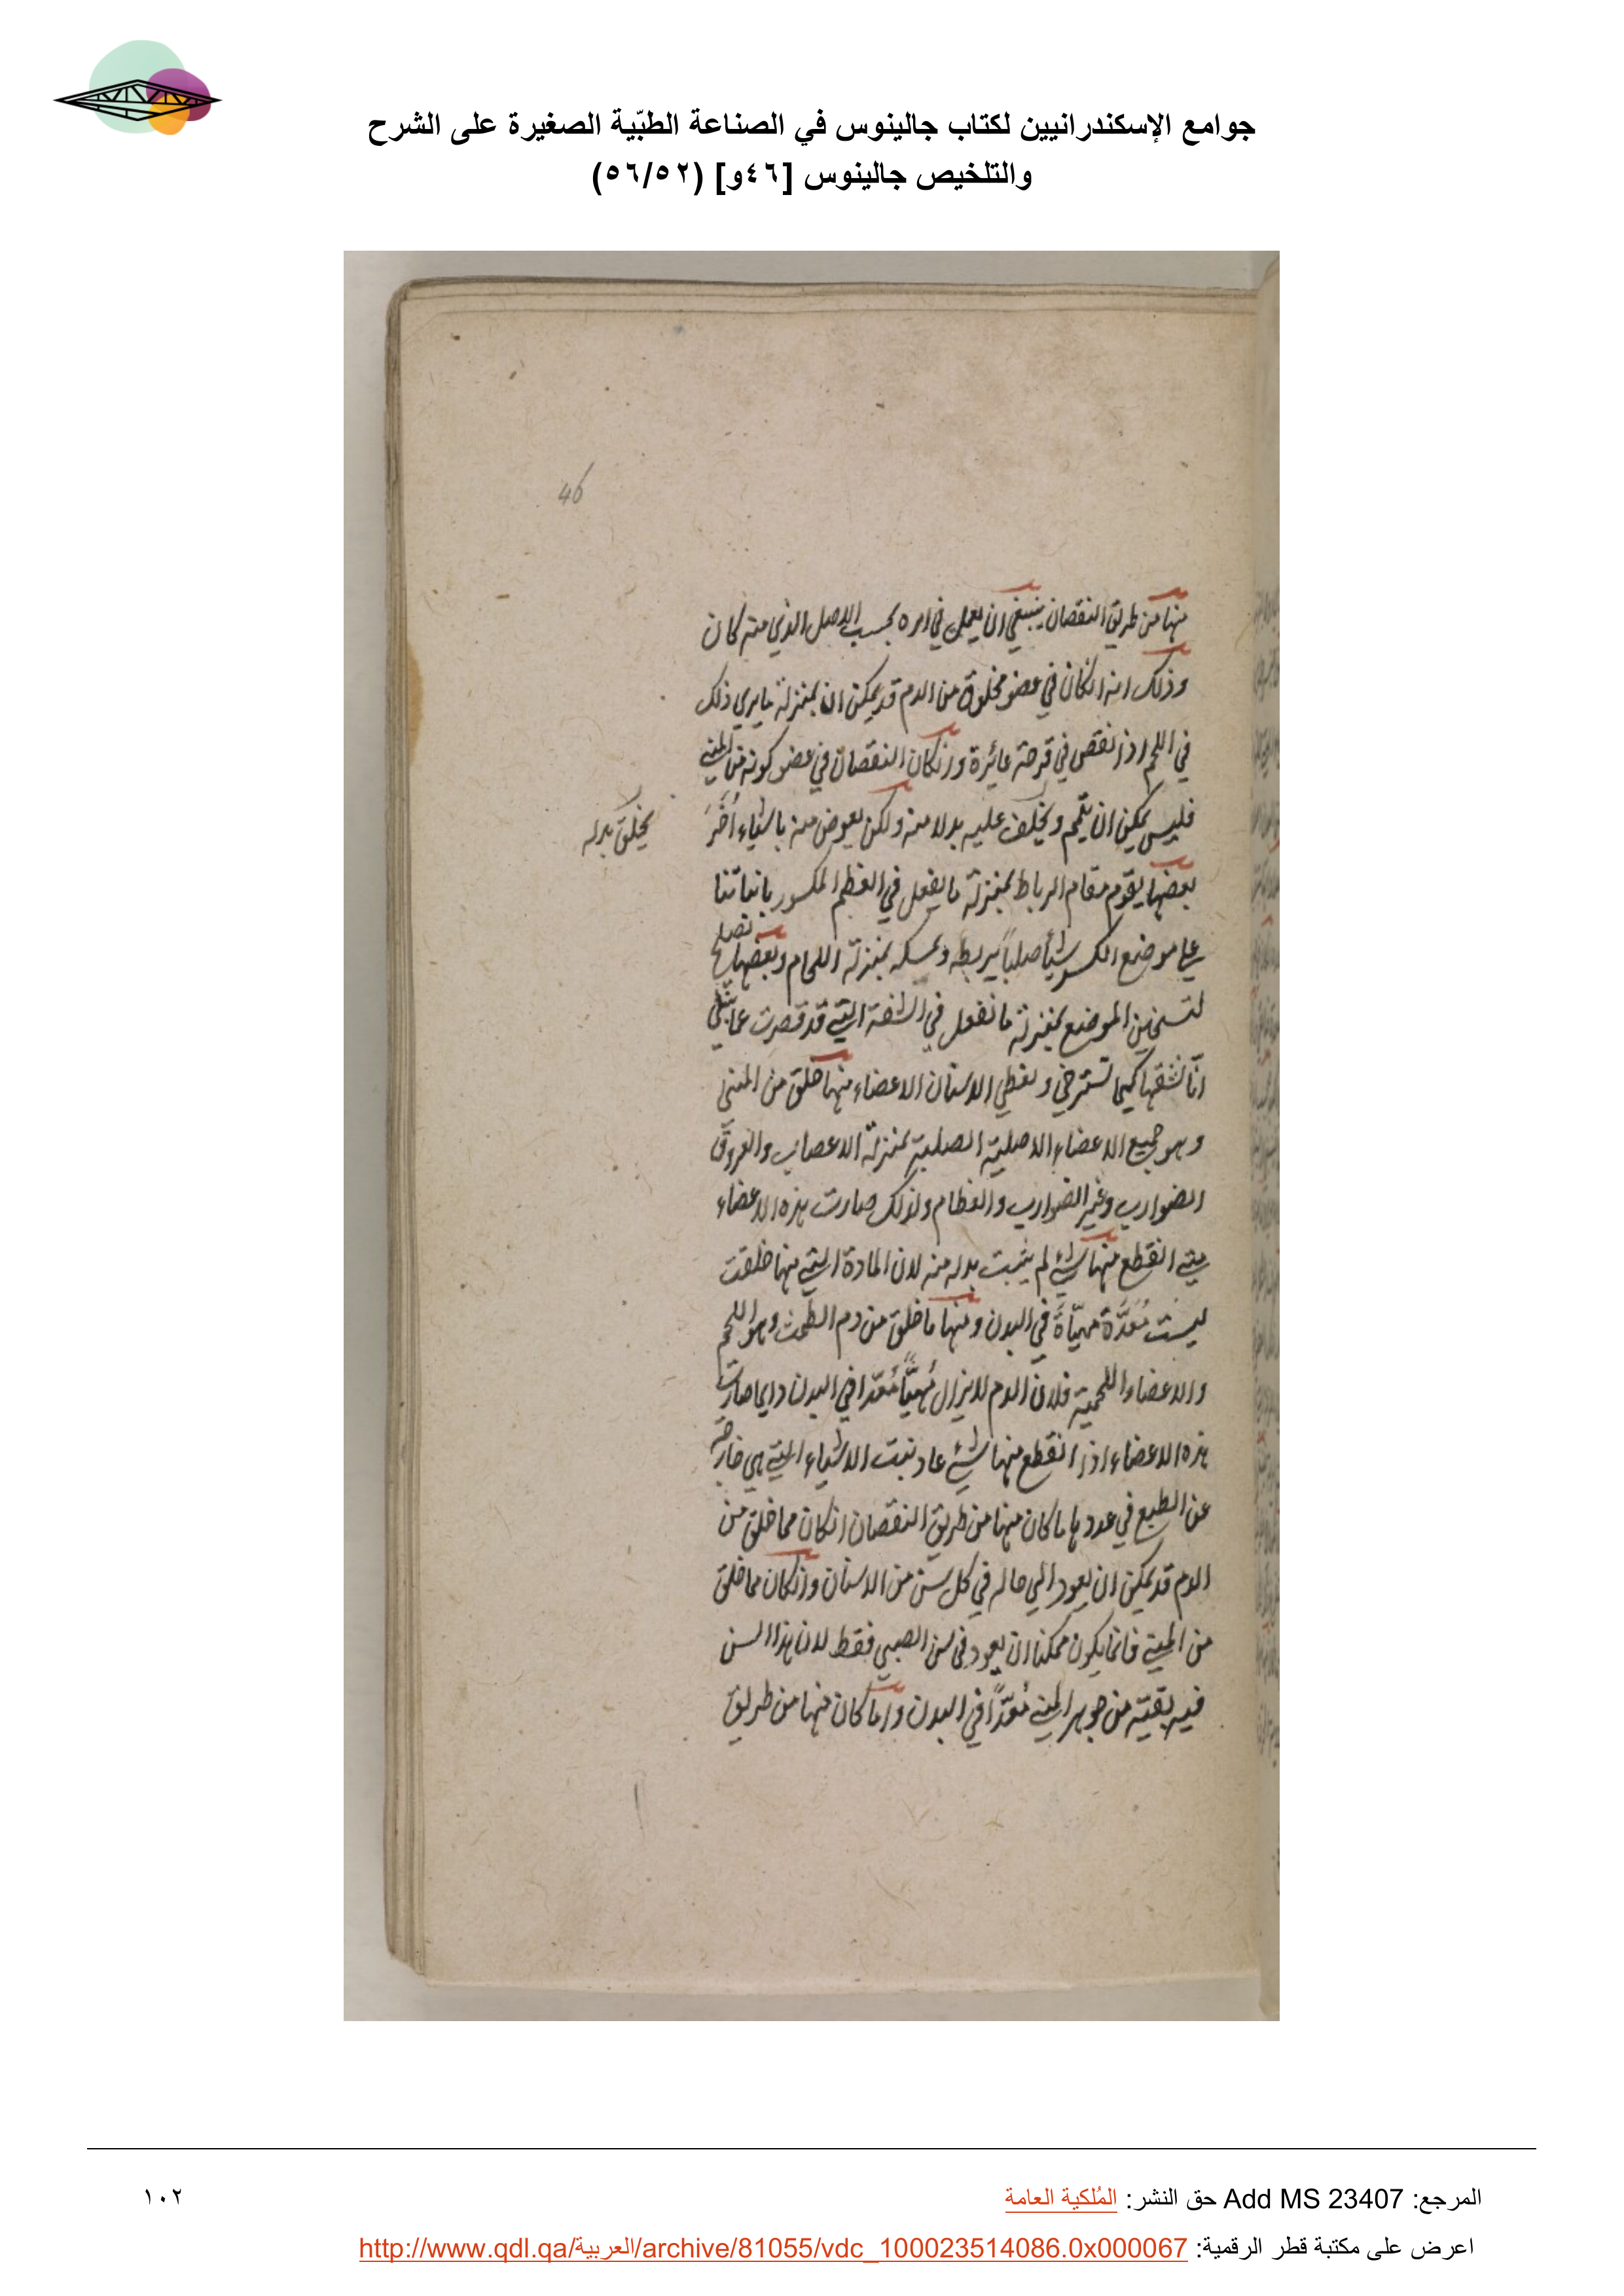 جوامع الإسكندرانيين لكتاب جالينوس في الصناعة الطبّية الصغيرة على الشرح
والتلخيص جالينوس [٤٦و] (٥٦/٥٢)
46
منها من طريق النقصان ينبغي ان يعمل في امره بحسب الاصل الذي منه كان
وذلك انه انكان في عضو مخلوق من الدم قد يمكن ان بمنزلة ما يري ذلك
في اللحم اذا نقص في قرحة غائرة وانكان النقصان في عضو كونه من المني
فليس يمكن ان يلتحم ويخلف عليه بدلا منه ولكن يعوض منه باشياء أُخَرَ
يخلق بدله
بعضها يقوم مقام الرباط بمنزلة ما يفعل في العظم المكسور
علي موضع الكسر شيأ صلباً يربطه ويمسكه بمنزلة اللحام وبعضها تصلح
لتسخين الموضع بمنزلة ما نفعل في الشفة التي قد قصرت
انّا نشقها كيما تسترخي وتغطي الاسنان الاعضاء منها خلق من المني
وهو جميع الاعضاء الاصلية الصلبة بمنزلة الاعصاب والعروق
الضوارب وغير الضوارب والعظام ولذلك صارت هذه الاعضاء
متي انقطع منها شئ لم يثبت بدله منه لان المادة التي منها خلقت
ليست مُعَدَّة مهيّاة في البدن ومنها ما خلق من دم الطمث وهو اللحم
والاعضاء اللحمية فلان الدم لا يزال مُهيّأً مُعَدّا في البدن دايما صارت
هذه الاعضاء اذا انقطع منها شئ عاد نبت الاشياء التي هي خارجة
عن الطبع في عددها ما كان منها من طريق النقصان انكان مما خلق من
الدم قد يمكن ان يعود الي حاله في كل سن من الاسنان وانكان مما خلق
من المني فانما يكون ممكنا ان يعود في سن الصبي فقط لان هذا السن
فيه بقية من جوهر المني مُعَدّاً في البدن واما كان منها من طريق
المرجع: Add MS 23407 حق النشر: المُلكية العامة
١٠٢
اعرض على مكتبة قطر الرقمية: http://www.qdl.qa/العربية/archive/81055/vdc_100023514086.0x000067